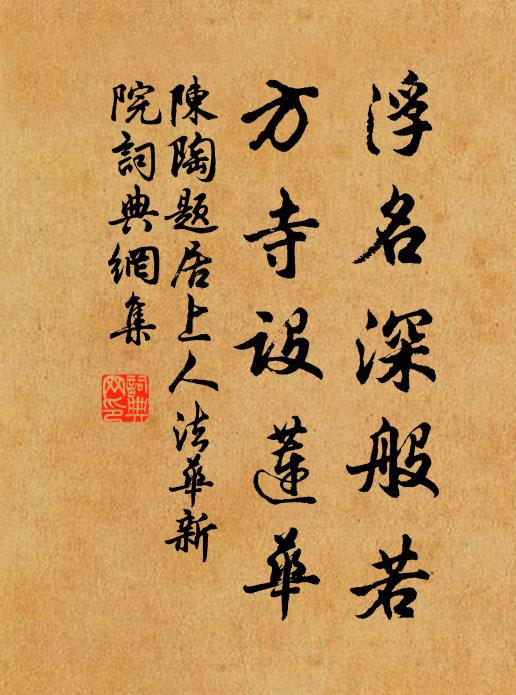 浮名深般若
方寺設蓮華
陳陶題居上人法華新
院詞典網集
詞典
网印